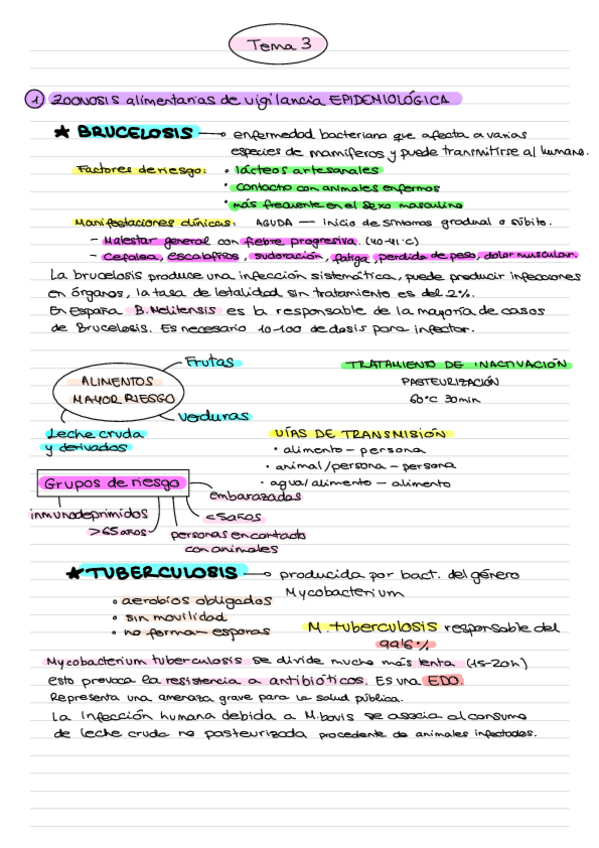 Tema 3
1 ZOONOSIS alimentarias de vigilancia EPIDEMIOLÓGICA
★ BRUCELOSIS → enfermedad bacteriana que afecta a varias
especies de mamíferos y puede transmitirse al humano.
Factores de riesgo: • lácteos artesanales
• contacto con animales enfermos
• más frecuente en el sexo masculino
Manifestaciones clínicas: AGUDA — inicio de síntomas gradual o súbito.
- Malestar general con fiebre progresiva. (40-41°C)
- Cefalea, escalofríos, sudoración, fatiga, perdida de peso, dolor muscular.
La brucelosis produce una infección sistemática, puede producir infecciones
en órganos, la tasa de letalidad sin tratamiento es del 2%.
En España B. Melitensis es la responsable de la mayoría de casos
de Brucelosis. Es necesario 10-100 de dosis para infectar.
ALIMENTOS
MAYOR RIESGO
Frutas
Verduras
Leche cruda
y derivados
TRATAMIENTO DE INACTIVACIÓN
PASTEURIZACIÓN
60°C 30min
VÍAS DE TRANSMISIÓN
• alimento - persona
• animal/persona - persona
• agua/alimento - alimento
Grupos de riesgo
embarazadas
inmunodeprimidos
<5años
>65años
personas en contacto
con animales
★ TUBERCULOSIS → producida por bact. del género
Mycobacterium
• aerobios obligados
• sin movilidad
• no forman esporas
M. tuberculosis responsable del
99'6%
Mycobacterium tuberculosis se divide mucho más lenta (15-20h)
esto provoca la resistencia a antibióticos. Es una EDO.
Representa una amenaza grave para la salud pública.
La infección humana debida a M. bovis se asocia al consumo
de leche cruda no pasteurizada procedente de animales infectados.